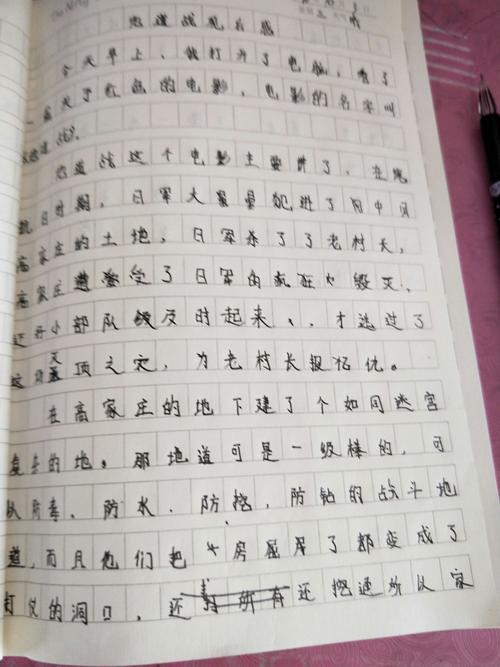 地道战观后感
今天早上、我打开了电脑，看了
一篇关于红色的电影，电影的名字叫
《地道战》。
地道战这个电影主要讲了、在晚
抗日时期，日军大量量犯进了冉中间
高家庄的土地，日军杀了了老村长，
高家庄遭受了日军的疯狂火毁灭，
还好小部队及时起来、、才逃过了
这灭顶之灾，为老村长报仇。
在高家庄的地下建了个如同迷宫
复杂的地。那地道可是一级棒的，可
以防毒、防水、防挖，防钻的战斗地
道，而且他们把房屋里了都变成了
打仗的洞口，还还挖通所以家